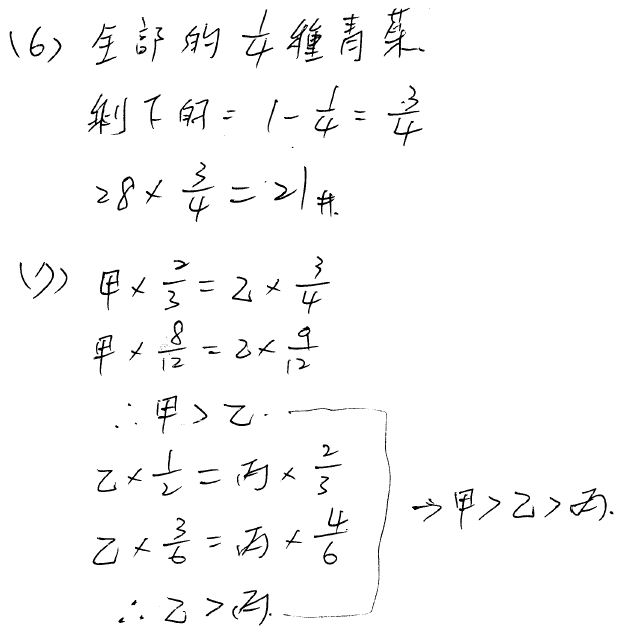 (6) 全部的 1/4 種青菜.
剩下的 = 1 - 1/4 = 3/4
28 × 3/4 = 21 #.
(7) 甲 × 2/3 = 乙 × 3/4
甲 × 8/12 = 乙 × 9/12
∴ 甲 > 乙.
乙 × 1/2 = 丙 × 2/3
乙 × 3/6 = 丙 × 4/6
→ 甲 > 乙 > 丙.
∴ 乙 > 丙.